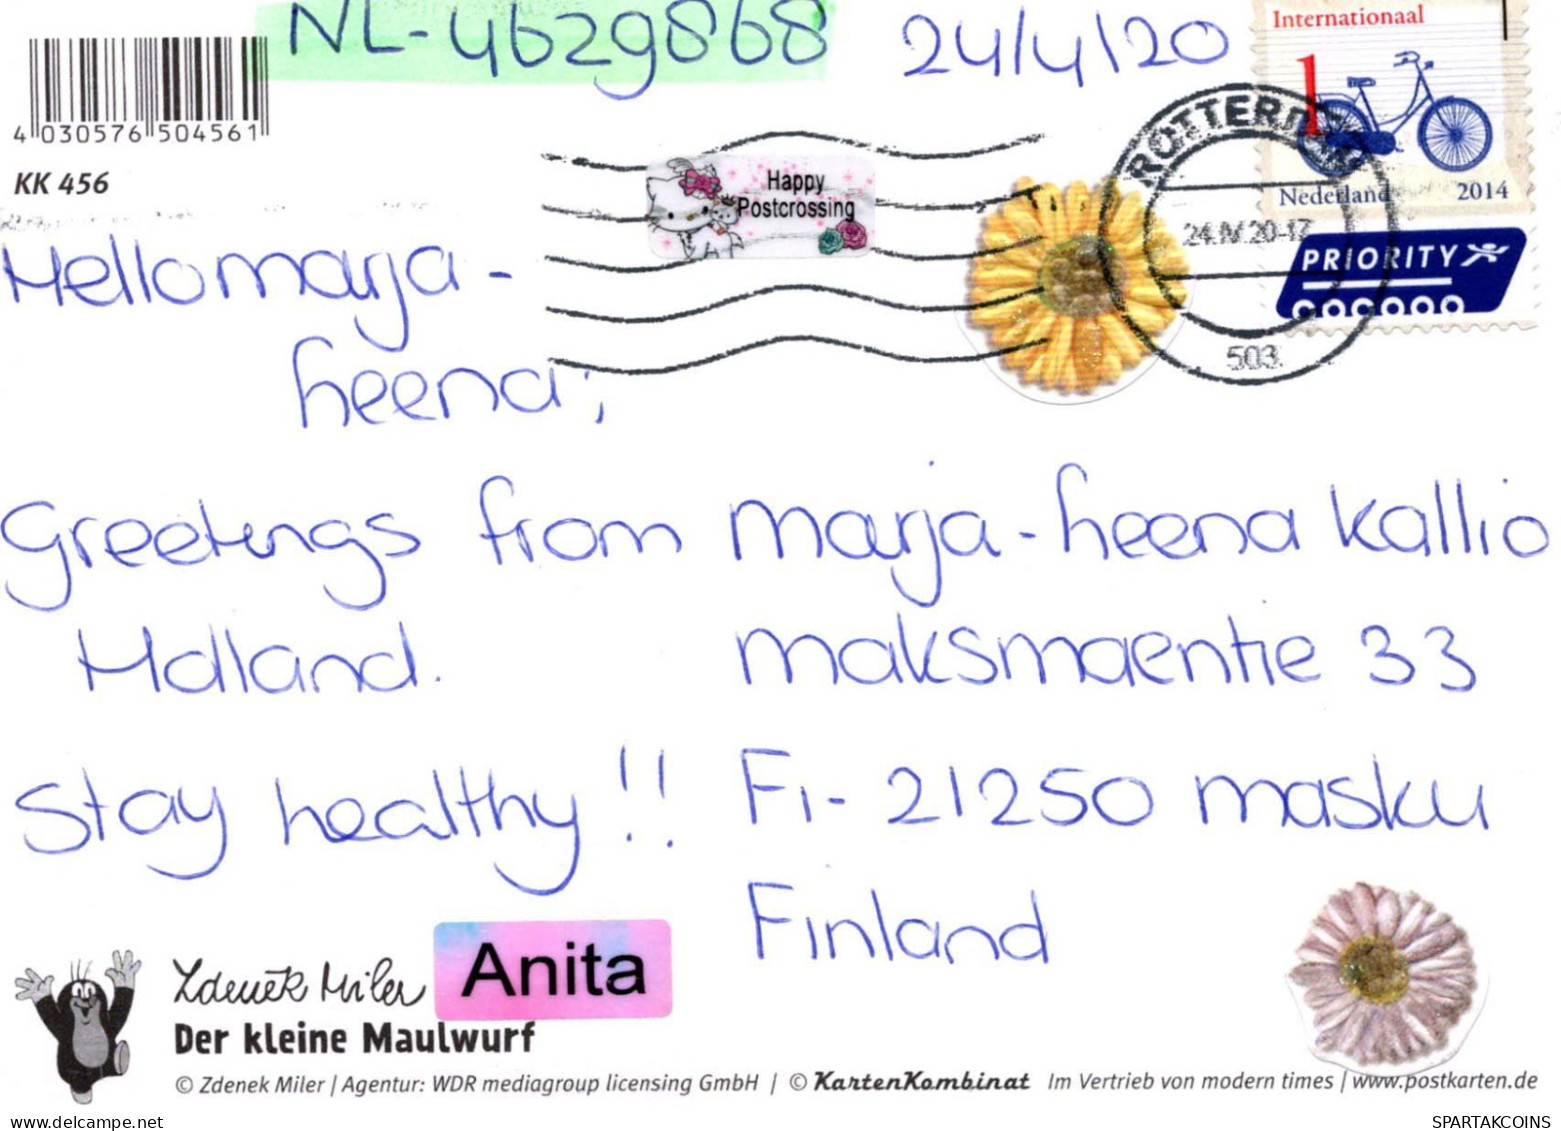 NL-4629868
24/4/20
Internationaal
1
Nederland 2014
PRIORITY
ROTTERDAM
24.IV.20-17
503
4 030576 504561
KK 456
Happy
Postcrossing
Hello marja-
heena,
Greetings from
Holland.
Stay healthy!!
marja-heena kallio
maksmaentie 33
Fi-21250 masku
Finland
Anita
Zdeněk Miler
Der kleine Maulwurf
© Zdenek Miler | Agentur: WDR mediagroup licensing GmbH | © KartenKombinat Im Vertrieb von modern times | www.postkarten.de
delcampe.net
SPARTAKCOINS